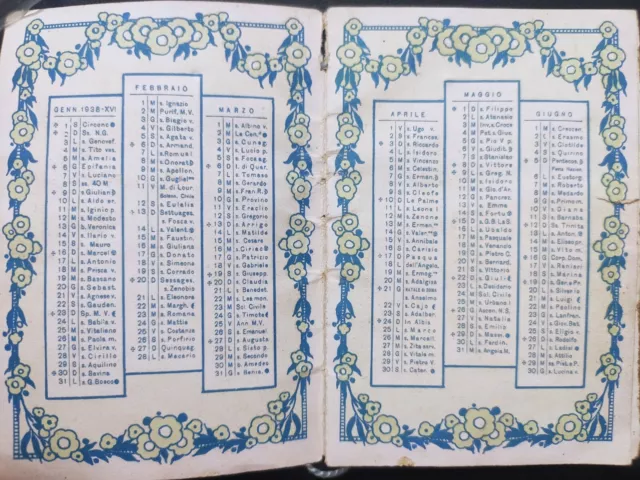 GENN. 1938-XVI
1 S Circonc.
2 D Ss. N.G.
3 L s. Genovef.
4 M s. Tito ves.
5 M s. Amelia
6 G Epifania
7 V s. Luciano
8 S ss. 40 M.
9 D s. Giulian
10 L s. Aldo er.
11 M s. Iginio p.
12 M s. Modesto
13 G s. Veronica
14 V s. Ilario v.
15 S s. Mauro
16 D s. Marcel
17 L s. Antonio
18 M s. Prisca v.
19 M s. Bassano
20 G s. Sebast.
21 V s. Agnese v.
22 S s. Gauden.
23 D Sp. M.V.
24 L s. Babila v.
25 M s. Vitaliano
26 M s. Paola m.
27 G s. Elvira v.
28 V s. Cirillo
29 S s. Aquilino
30 D s. Savina
31 L s. G. Bosco
FEBBRAIO
1 M s. Ignazio
2 M Purif. M.V.
3 G s. Biagio v.
4 V s. Gilberto
5 S s. Agata v.
6 D s. Armand.
7 L s. Romual.
8 M s. Onorat
9 M s. Apollon.
10 G s. Guglie
11 V M. di Lour.
12 S s. Eulalia
13 D Settuages.
s. Fosca v.
14 L s. Valent.
15 M s. Faustin.
16 M s. Giuliana
17 G s. Donato
18 V s. Simeone
19 S s. Corrado
20 D Sessages.
s. Zenobio
21 L s. Eleonora
22 M s. Margh.
23 M s. Romana
24 G s. Mattia
25 V s. Costanza
26 S s. Porfirio
27 D Quinquag.
28 L s. Macario
MARZO
1 M s. Albino v.
2 M Le Cen.
3 G s. Cuneg.
4 V s. Lucio p.
5 S s. Focag.
6 D I. di Quar.
7 L s. Tomaso
8 M s. Gerardo
9 M s. Fran. R.
10 G s. Provino
11 V s. Eraclio
12 S s. Gregorio
13 D s. Arrigo
14 L s. Matilde
15 M s. Cesare
16 M s. Ciriac
17 G s. Patrizio
18 V s. Gabriele
19 S s. Giusepp.
20 D s. Claudia
21 L s. Benedet.
22 M s. Lea mon.
23 M Sol. Civile
24 G s. Timote
25 V Ann. M.V.
26 S s. Emanuel
27 D s. Augusta
28 L s. Sisto p.
29 M s. Secondo
30 M s. Amedeo
31 G s. Balbina
APRILE
1 V s. Ugo v.
2 S s. Frances.
3 D s. Riccardo
4 L s. Isidoro
5 M s. Vincenzo
6 M s. Celestin.
7 G s. Erman
8 V s. Alberto
9 S s. M. Cleof.
10 D Le Palme
11 L s. Leone I
12 M s. Zenone
13 M s. Ermen.
14 G s. Valer.
15 V s. Annibale
16 S s. Caristo
17 D Pasqua
18 L dell'Angelo.
19 M s. Ermog.
20 M s. Adalgisa
21 G NATALE DI ROMA
s. Anselmo
22 V s. Cajo
23 S s. Adalber.
24 D in Albis
25 L s. Marco
26 M s. Marcell.
27 M s. Zita verm.
28 G s. Vitale m.
29 V s. Pietro V.
30 S s. Cater.
MAGGIO
1 D s. Filippo
2 L s. Atanasio
3 M Inv. s. Croce
4 M Pat. s. Gius.
5 G s. Pio V p.
6 V s. Giuditta
7 S s. Stanislao
8 D s. Vittore
9 L s. Greg. N.
10 M s. Isidoro
11 M s. Gio. d'Av.
12 G s. Pancraz.
13 V s. Emma
14 S s. Fortu
15 D s. G. B. La S.
16 L s. Ubaldo
17 M s. Pasquale
18 M s. Venanzio
19 G s. Pietro C.
20 V s. Bernard.
21 S s. Vittorio
22 D s. Giulia
23 L s. Desiderio
24 M Sol. Civile
25 M s. Urbano I
26 G Ascen. N.S.
27 V s. Natalia
28 S s. Emilio
29 D s. Massim.
30 L s. Ferdin.
31 M s. Angela M.
GIUGNO
1 M s. Crescen.
2 G s. Erasmo
3 V s. Clotilde
4 S s. Quirino
5 D Pentecos.
Festa Nazion.
6 L s. Eustorg.
7 M s. Roberto
8 M s. Medardo
9 G s. Primo m.
10 V s. Diana
11 S s. Barnaba
12 D Ss. Trinità
13 L s. Anton.
14 M s. Eliseopr.
15 M s. Vito m.
16 G Corp. Dom.
17 V s. Ranieri
18 S s. Marina
19 D s. Ger. e Pr.
20 L s. Silverio
21 M s. Luigi
22 M s. Paolino
23 G s. Lanfran.
24 V s. Gio. Bat.
25 S s. Eligio v.
26 D s. Rodolfo
27 L s. Ladisl
28 M s. Attilio
29 M ss. Piet. e P.
30 G s. Lucina v.